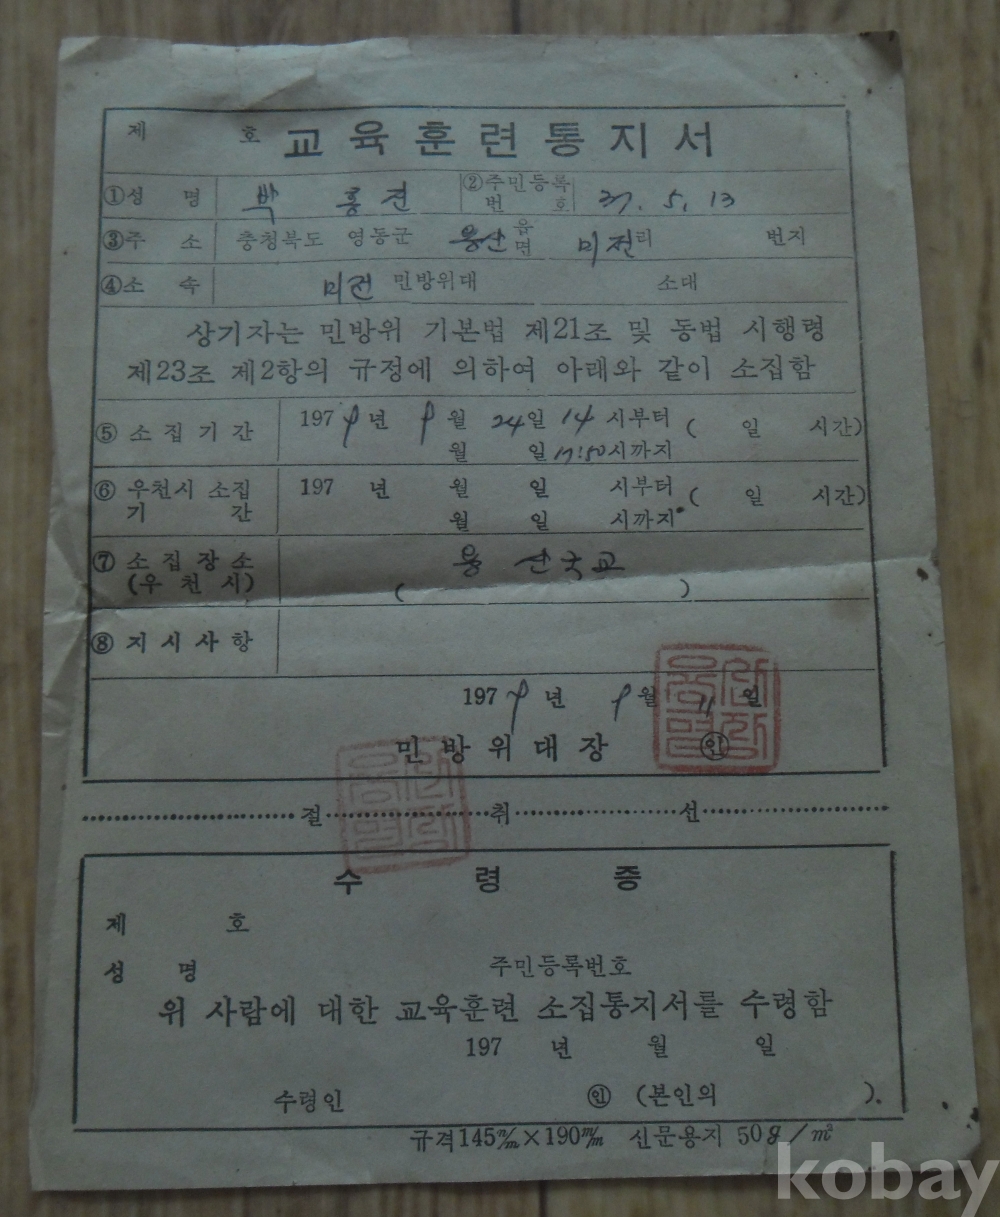 제 호 교육훈련통지서
①성 명 박 홍 전 ②주민등록번 호 37. 5. 13
③주 소 충청북도 영동군 용산 읍면 미전리 번지
④소 속 미전 민방위대 소대
상기자는 민방위 기본법 제21조 및 동법 시행령
제23조 제2항의 규정에 의하여 아래와 같이 소집함
⑤ 소집기간 1979년 9월 24일 14시부터 ( 일 시간)
월 일 17:50시까지
⑥ 우천시 소집 197 년 월 일 시부터 ( 일 시간)
기 간 월 일 시까지
⑦ 소집장소 용산국교
(우 천 시) ( )
⑧ 지시사항
1979년 9월 11일
민방위대장 ㊞
절 취 선
수 령 증
제 호
성 명 주민등록번호
위 사람에 대한 교육훈련 소집통지서를 수령함
197 년 월 일
수령인 ㊞ (본인의 ).
규격145㎜×190㎜ 신문용지 50g/㎡
kobay